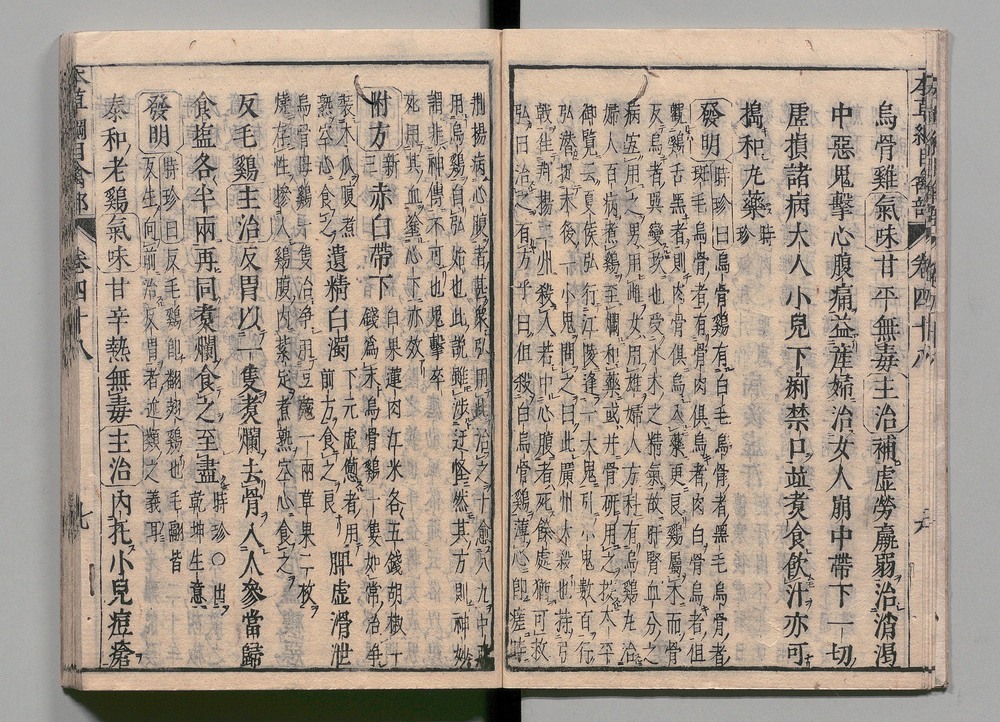 烏骨雞氣味甘平無毒主治補虛勞羸弱治消渴
中惡鬼擊心腹痛益產婦治女人崩中帶下一切
虛損諸病大人小兒下痢禁口並煮食飲汁亦可
搗和丸藥時珍
發明時珍曰烏骨雞有白毛烏骨者黑毛烏骨者
斑毛烏骨者有骨肉俱烏者肉白骨烏者但
觀雞舌黑者則肉骨俱烏入藥更良雞屬木而骨
反烏者巽變坎也受水木之精氣故肝腎血分之
病宜用之男用雌女用雄婦人方科有烏雞丸治
婦人百病煮雞至爛和藥或并骨研用之按太平
御覽云夏侯弘行江陵逢一大鬼引小鬼數百行
弘潛捉末後一小鬼問之曰此廣州大殺也持弓
戟往荊揚二州殺人若中心腹者死餘處猶可救
弘曰治之有方乎曰但殺白烏骨雞薄心即瘥時
荊揚病心腹者甚衆弘用此治之十愈八九中惡
用烏雞自弘始也此說雖涉迂怪然其方則神妙
謂非神傳不可也鬼擊卒
死用其血塗心下亦效
附方新三赤白帶下白果蓮肉江米各五錢胡椒一
錢爲末烏骨雞一隻如常治淨
裝末入腹煮
熟空心食之遺精白濁下元虛憊者用
前方食之良脾虛滑泄
烏骨母雞一隻治淨用豆蔻一兩草果二枚
燒存性摻入雞腹內紮定煮熟空心食之
反毛雞主治反胃以一隻煮爛去骨入人參當歸
食鹽各半兩再同煮爛食之至盡時珍○出
乾坤生意
發明時珍曰反毛雞即翻翅雞也毛翮皆
反生向前治反胃者述類之義耳
泰和老雞氣味甘辛熱無毒主治內托小兒痘瘡
本草綱目禽部
卷四十八
七